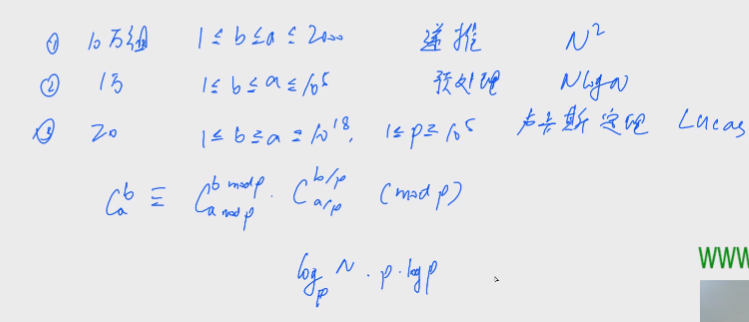 ① 10万组 1 ≤ b ≤ a ≤ 2000 递推 N²
② 1万 1 ≤ b ≤ a ≤ 10⁵ 预处理 NlogN
③ 20 1 ≤ b ≤ a ≤ 10¹⁸, 1 ≤ p ≤ 10⁵ 卢卡斯定理 Lucas
C_a^b ≡ C_{a mod p}^{b mod p} · C_{a/p}^{b/p} (mod p)
log_p N · p · log p
WWW